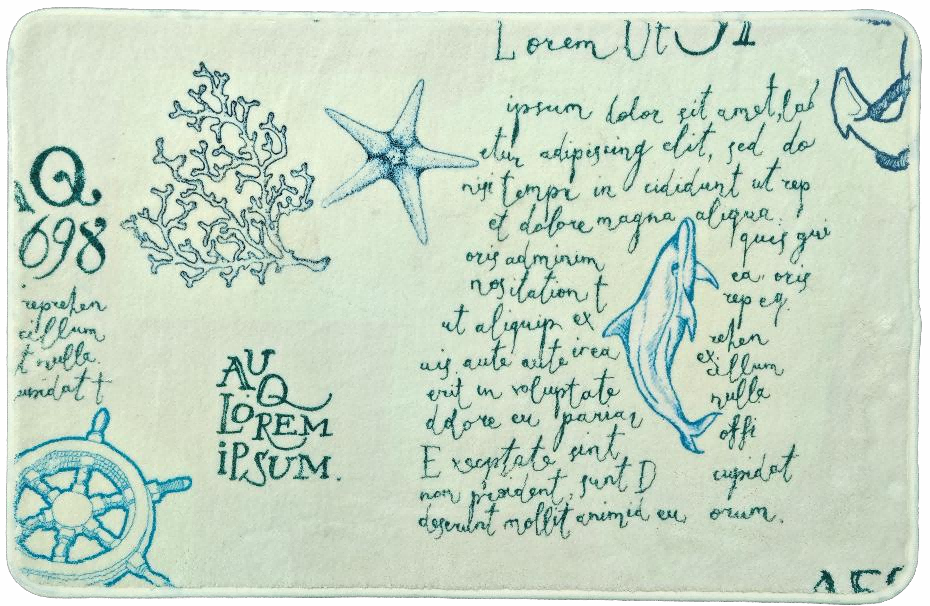 Lorem Ut
ipsum dolor sit amet, lab
etur adipiscing elit, sed do
nisi tempr in cididunt ut rep
et dolore magna aliqua.
quis qui
oris adminim
ea oris
nositation t
rep eq.
ut aliquip ex
rehen
uis aute aute irea
ex cillum
erit in voluptate
nulla
ddore eu pariar
offi
Exceptate sint
cupidat
non proident, sunt D
deserunt mollit animid eu
orum.
Q
698
reprehen
cillum
t nulla.
upidat t
AU
Q
LOREM
iPSUM.